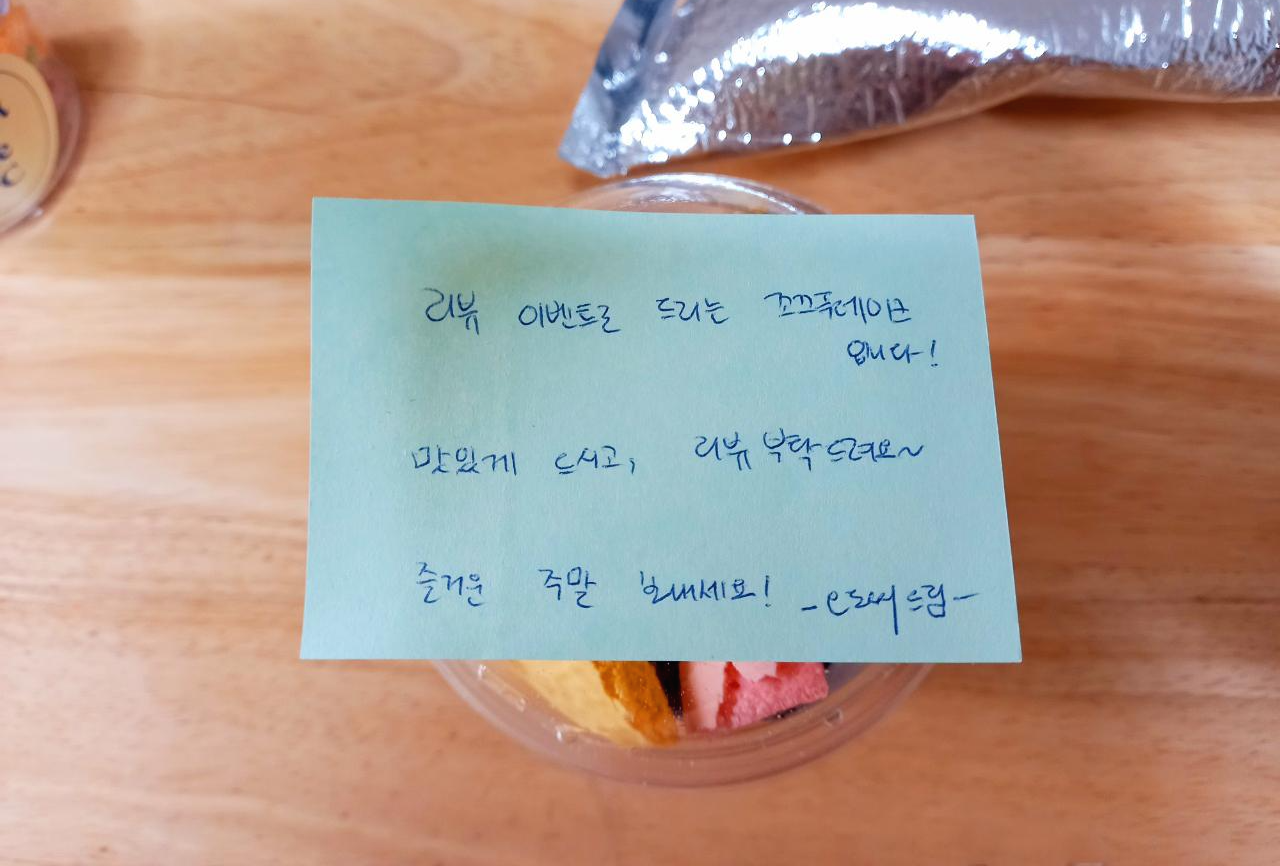 리뷰 이벤트로 드리는
입니다!
맛있게 드시고, 리뷰 부탁드려요~
즐거운 주말 보내세요! 드림-